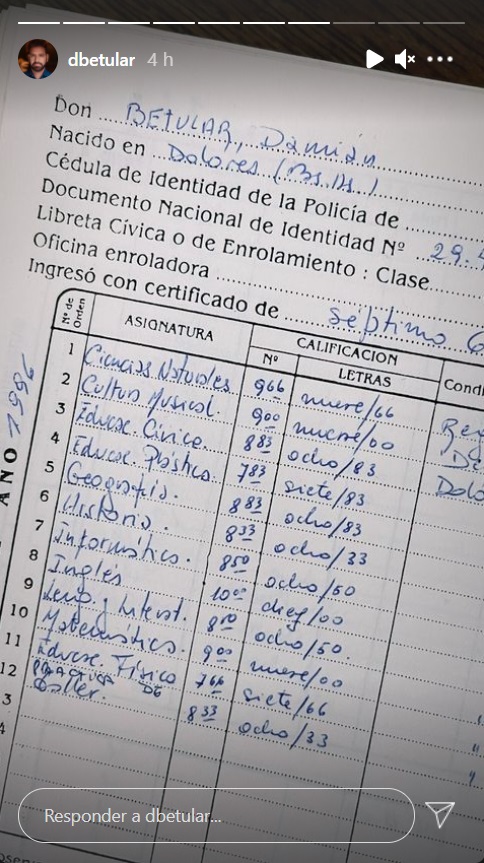 dbetular 4 h
Don ... BETULAR, Damián
Nacido en ... Dolores (Bs. As.)
Cédula de Identidad de la Policía de
Documento Nacional de Identidad Nº ... 29.
Libreta Cívica o de Enrolamiento : Clase
Oficina enroladora
Ingresó con certificado de ... septimo G
Nº de Orden ASIGNATURA CALIFICACION Condi
Nº LETRAS
AÑO 1995
1 Ciencias Naturales 966 nueve/66
2 Cultura Musical 900 nueve/00
3 Educac. Cívica 883 ocho/83
4 Educac. Plástica 783 siete/83
5 Geografía 883 ocho/83
6 Historia 833 ocho/33
7 Informática 850 ocho/50
8 Inglés 1000 diez/00
9 Leng. y Literat. 850 ocho/50
10 Matemática 900 nueve/00
11 Educac. Física 766 siete/66
12 PRACTICA DE Taller 833 ocho/33
3
4
Responder a dbetular...